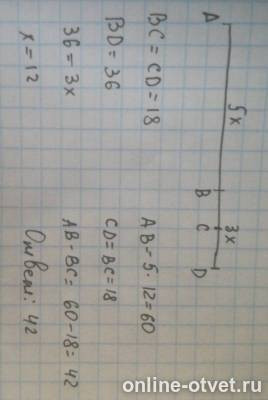 A 5x B C 3x D
BC = CD = 18
AB = 5 · 12 = 60
BD = 36
CD = BC = 18
36 = 3x
AB - BC = 60 - 18 = 42
x = 12
Ответ: 42
online-otvet.ru